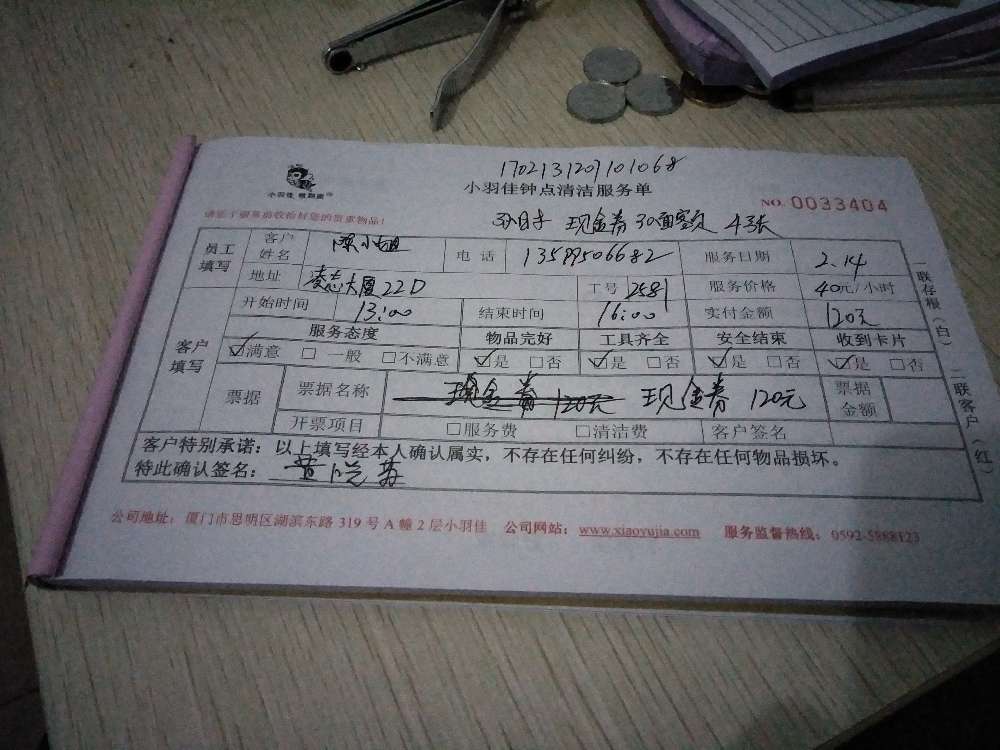 170213120710​1068
小羽佳钟点清洁服务单
NO. 0033404
现金券30面额 4张
员工填写 客户姓名 陈小姐 电话 13599506682 服务日期 2.14
地址 凌志大厦22D 工号 2581 服务价格 40元/小时
客户填写 开始时间 13:00 结束时间 16:00 实付金额 120元
服务态度 物品完好 工具齐全 安全结束 收到卡片
☑满意 □一般 □不满意 ☑是 □否 ☑是 □否 ☑是 □否 ☑是 □否
票据 票据名称 现金券 120元 现金券 120元 票据金额
开票项目 □服务费 □清洁费 客户签名
客户特别承诺：以上填写经本人确认属实，不存在任何纠纷，不存在任何物品损坏。
特此确认签名：
公司地址：厦门市思明区湖滨东路 319 号 A 幢 2 层小羽佳 公司网站：www.xiaoyujia.com 服务监督热线：0592-5888123
一联存根（白）
二联客户（红）